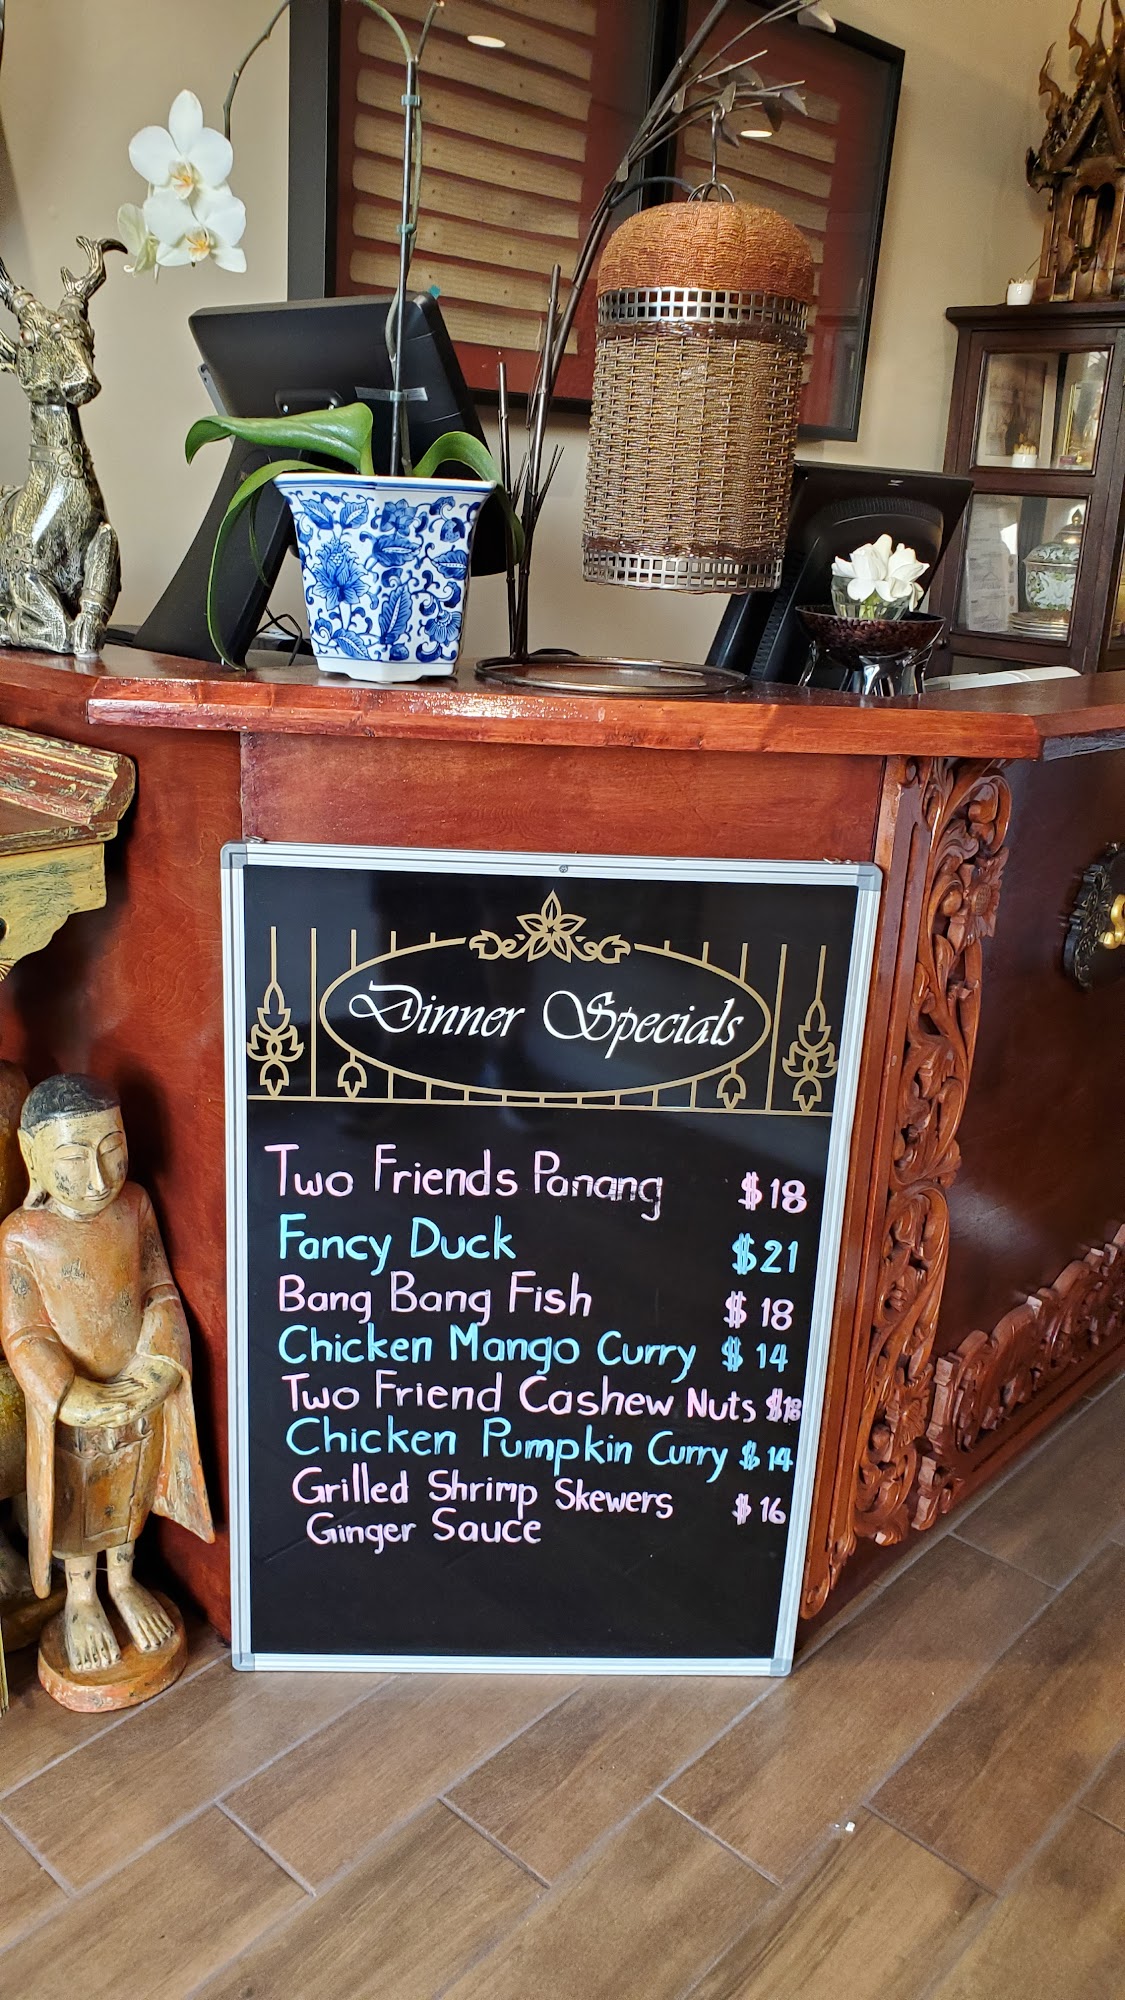 Dinner Specials
Two Friends Panang $18
Fancy Duck $21
Bang Bang Fish $18
Chicken Mango Curry $14
Two Friend Cashew Nuts $18
Chicken Pumpkin Curry $14
Grilled Shrimp Skewers $16
Ginger Sauce